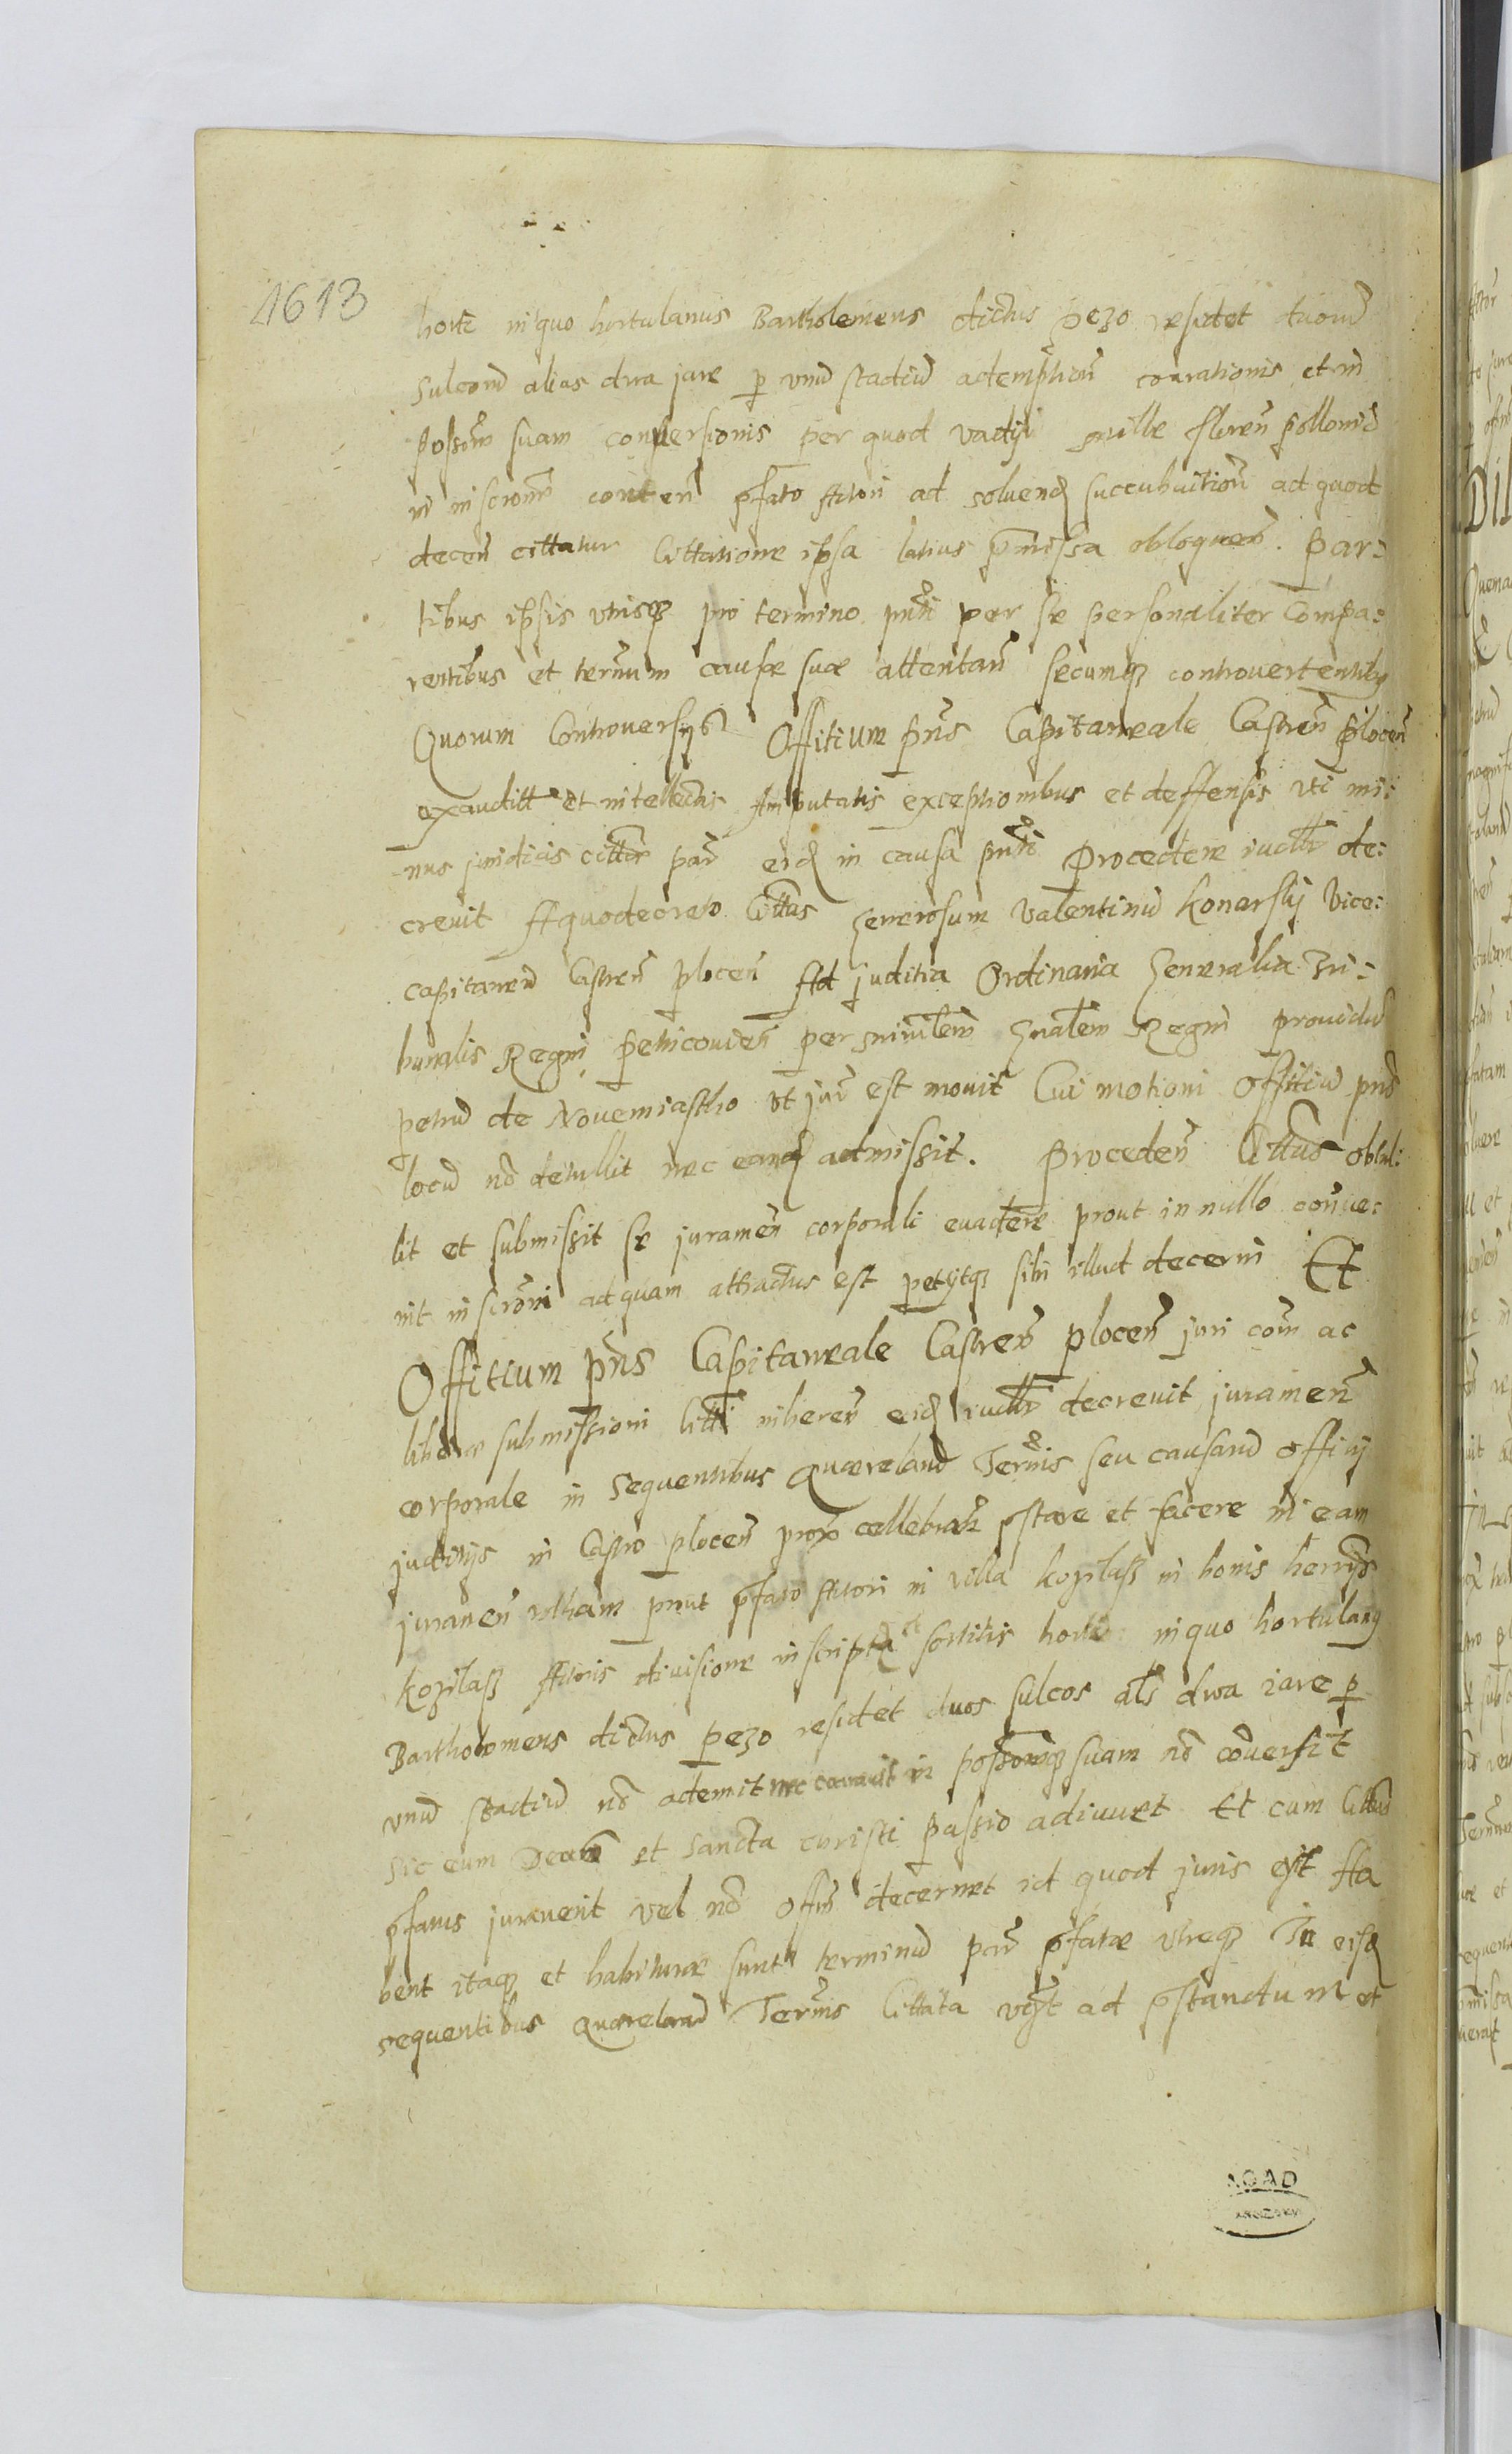 1613
horti in quo hortulanus Bartholemeus dictus pezo residet duorũ
sulcorũ alias dwa jare p vnũ stadiũ ademptiom̃ conrationis et in
possom̃ suam conversionis per quod vadij mille floren̄ pollonic̃
in inscrone conten̄ pfato Actori ad soluend succubuitiom̃ ad quod
decen̄ cittatur Cittatione ipsa latius p̃missa obloquen̄. Par:
tibus ipsis vtrisq pro termino pñti per se personaliter Compa:
rentibus et term̃um causæ suæ attentan̄ secumq controvertentibꝯ
Quorum Controversijs Offitium pñs Capitaneale Castren̄ plocen̄
exauditis et intellectis Amputatis exceptionibus et deffensis vti mi:
nus juridicis cittæ par̃ eisd in causa pñti Procedere iudltr de:
crevit A quo decreto Citta͂s Generosum Valentinũ Konarskij Vice:
capitaneũ Castren̄ plocen̄ Ad juditia Ordinaria Generalia Tri:
bunalis Regni petricouien̄ per ministlem Gnalem Regni prouidũ
petrũ de Novemiastho vt jur̃ est mouit Cui motioni offitiũ pñs
locũ nõ detullit nec eand admissit. Proceden̄ Citta͂s obtul:
lit et submissit se juramen̄ corporali euadere prout in nullo conue:
nit inscroni ad quam attractus est petijtq sibi illud decerni Et
Offitium pñs Capitaneale Castren̄ plocen̄ juri com̃ ac
liberæ submissioni citti inheren̄ eid iudltr decrevit juramen̄
corporale in sequentibus Querelarũ Term̃is seu causarũ officij
juditijs in Castro plocen̄ prox̃ cellebran̄ pstare et facere in eam
juramen̄ rotham prout pfato Actori in villa kozilass in bonis herrijs
kozilass Actoris divisione inscripta et sortitis horti in quo hortulanꝯ
Bartholomeus dictus pezo residet duos sulcos als dwa jare p
vnũ stadiũ nõ ademit nec conravit in possomq suam nõ conversit
Sic eum Deus et sancta christi passio adiuuet Et cum Citta͂s
pfatus juraverit vel nõ offm̃ decernet id quod juris est Ha
bent itaq et habituræ sunt terminũ par̃ pfatæ vtreq In eisd
sequentibus querelarũ Term̃is Cittata ad pstandum et
AGAD